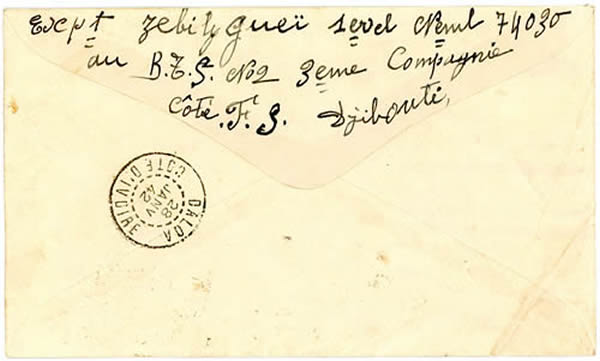 Excpt Zebily gueï 1ere cl Nemle 74030
au B.T.S. No2 3eme Compagnie
Côte .Fse S. Djibouti,
DALOA
28
JANV
42
COTE D'IVOIRE